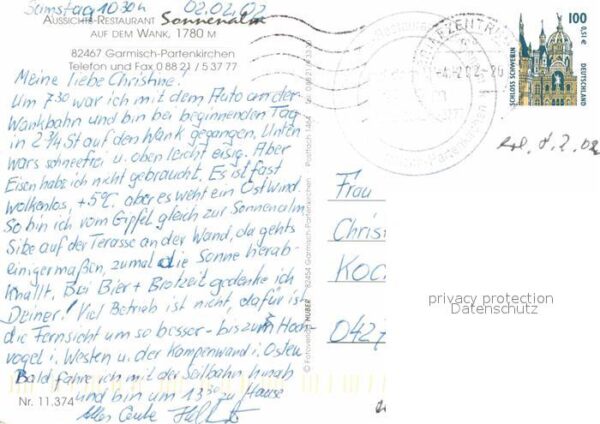 Samstag 10 30 h 02.02.02
Aussichts-Restaurant Sonnenalm
auf dem Wank, 1780 m
82467 Garmisch-Partenkirchen
Telefon und Fax 0 88 21 / 5 37 77
Meine liebe Christine!
Um 7 30 war ich mit dem Auto an der
Wankbahn und bin bei beginnenden Tag
in 2 3/4 St auf den Wank gegangen. Unten
wars schneefrei u. oben leicht eisig. Aber
Eisen habe ich nicht gebraucht. Es ist fast
wolkenlos, +5°C, aber es weht ein Ostwind.
So bin ich vom Gipfel gleich zur Sonnenalm.
Sitze auf der Terasse an der Wand, da gehts
einigermaßen, zumal die Sonne herab-
knallt. Bei Bier + Brotzeit gedenke ich
Deiner! Viel Betrieb ist nicht, dafür is
die Fernsicht um so besser - bis zum Hoch-
vogel i. Westen u. der Kampenwand i. Osten
Bald fahre ich mit der Seilbahn hinab
und bin um 13 30 zu Hause
Alles Gute
Nr. 11.374
HUBER
82454 Garmisch-Partenkirchen
100
0,51 €
SCHLOSS SCHWERIN
DEUTSCHLAND
Frau
Christ
Koc
042
privacy protection
Datenschutz